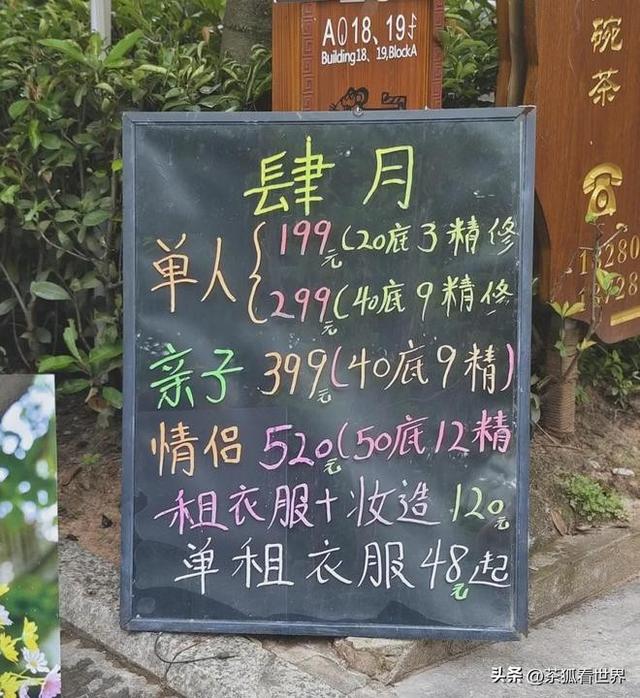 A栋18、19
Building18、19,BlockA
碗茶
肆月
单人
199元(20底3精修
299元(40底9精修
亲子 399元(40底9精)
情侣 520元(50底12精
租衣服+妆造 120元
单租衣服48元起
头条 @茶狐看世界